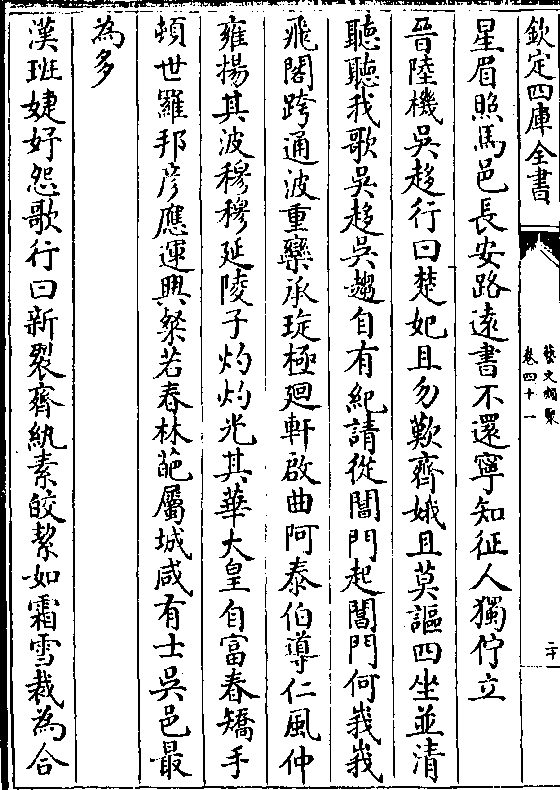 欽定四庫全書
藝文類聚
卷四十一
二十
星眉照馬邑長安路遠書不還寧知征人獨佇立
晉陸機吳趍行曰楚妃且勿歎齊娥且莫謳四坐並清
聽聽我歌吳趍吳趨自有紀請從閶門起閶門何峩峩
飛閣跨通波重欒承琁極廻軒啟曲阿泰伯導仁風仲
雍揚其波穆穆延陵子灼灼光其華大皇自富春矯手
頓世羅邦彦應運興粲若春林葩屬城咸有士吳邑最
為多
漢班婕妤怨歌行曰新裂齊紈素皎絜如霜雪裁為合